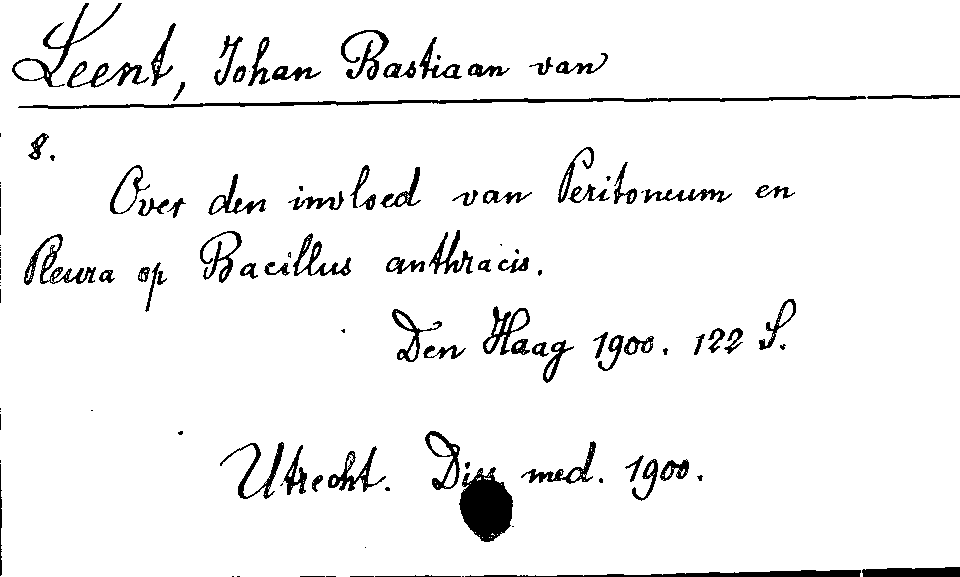 Leent, Johan Bastiaan van
8.
Over den invloed van Peritoneum en
Pleura op Bacillus anthracis.
Den Haag 1900. 122 S.
Utrecht. Diss. med. 1900.